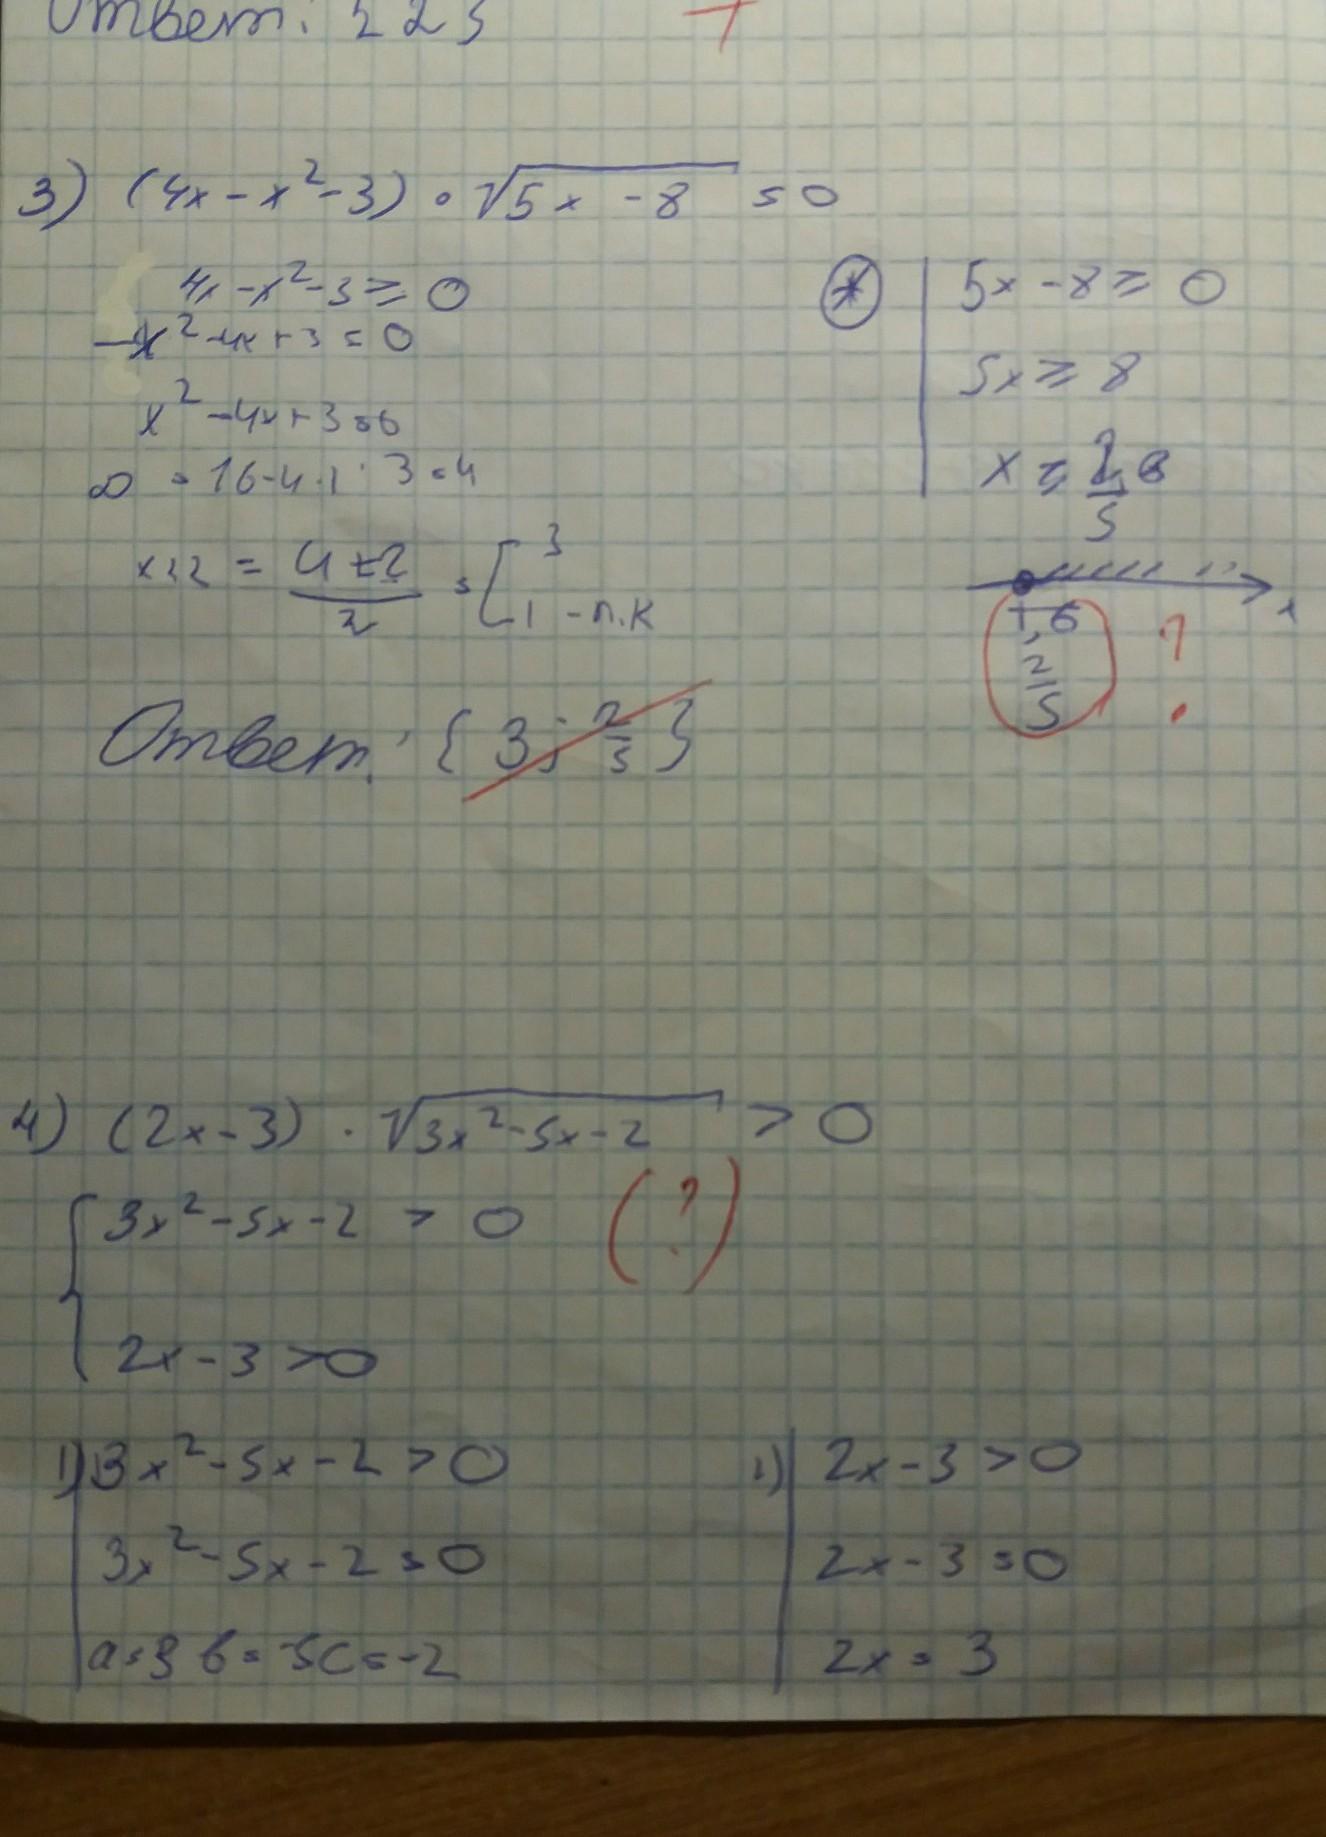 Ответ: {2}
3) (4x - x² - 3) · √(5x - 8) = 0
4x - x² - 3 ≥ 0
-x² - 4x + 3 = 0
x² - 4x + 3 = 0
D = 16 - 4 · 1 · 3 = 4
x₁,₂ = (4 ± 2)/2 = [ 3
1 - п.к
* 5x - 8 ≥ 0
5x ≥ 8
x ≥
1,6 x
2/5 ?
Ответ: { 3; 2/5 }
4) (2x - 3) · √(3x² - 5x - 2) > 0
{ 3x² - 5x - 2 > 0 (?)
2x - 3 > 0
1) 3x² - 5x - 2 > 0
3x² - 5x - 2 = 0
a = 3 b = -5 c = -2
2) 2x - 3 > 0
2x - 3 = 0
2x = 3